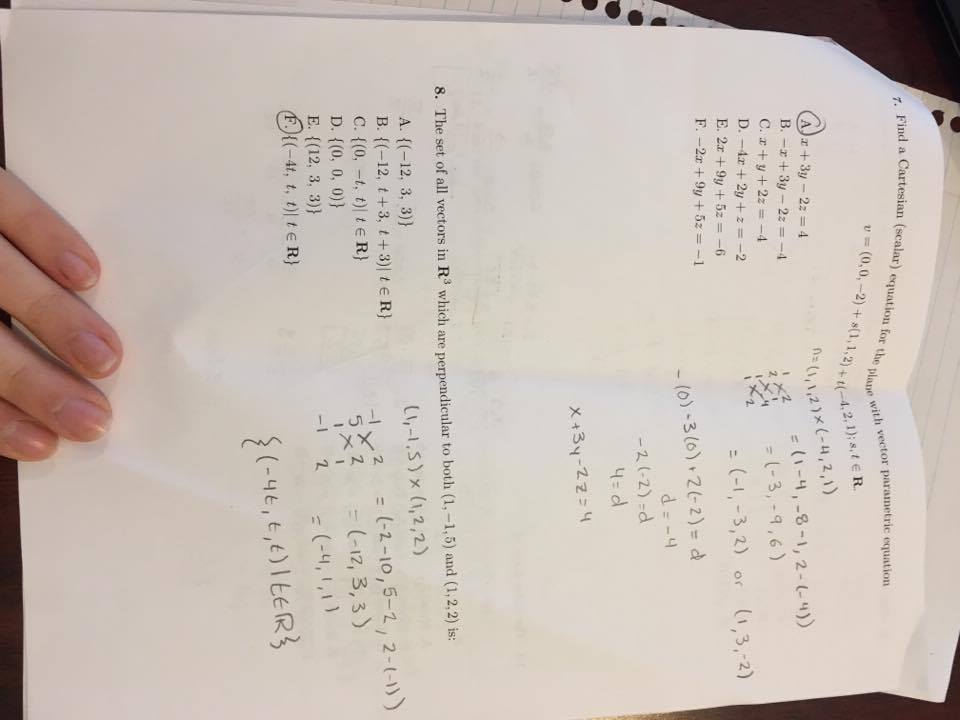 7. Find a Cartesian (scalar) equation for the plane with vector parametric equation
v = (0, 0, −2) + s(1, 1, 2) + t(−4, 2, 1); s, t ∈ R.
A. x + 3y − 2z = 4
B. −x + 3y − 2z = −4
C. x + y + 2z = −4
D. −4x + 2y + z = −2
E. 2x + 9y + 5z = −6
F. −2x + 9y + 5z = −1
n = (1, 1, 2) × (-4, 2, 1)
= (1-4, -8-1, 2-(-4))
= (-3, -9, 6)
= (-1, -3, 2) or (1, 3, -2)
-(0) -3(0) + 2(-2) = d
d = -4
-2(-2) = d
4 = d
x + 3y - 2z = 4
8. The set of all vectors in R³ which are perpendicular to both (1, −1, 5) and (1, 2, 2) is:
A. {(−12, 3, 3)}
B. {(−12, t + 3, t + 3)| t ∈ R}
C. {(0, −t, t)| t ∈ R}
D. {(0, 0, 0)}
E. {(12, 3, 3)}
F. {(−4t, t, t)| t ∈ R}
(1, -1, 5) × (1, 2, 2)
-1 2
5 2
1 1
-1 2
= (-2-10, 5-2, 2-(-1))
= (-12, 3, 3)
= (-4, 1, 1)
{(-4t, t, t) | t ∈ R}